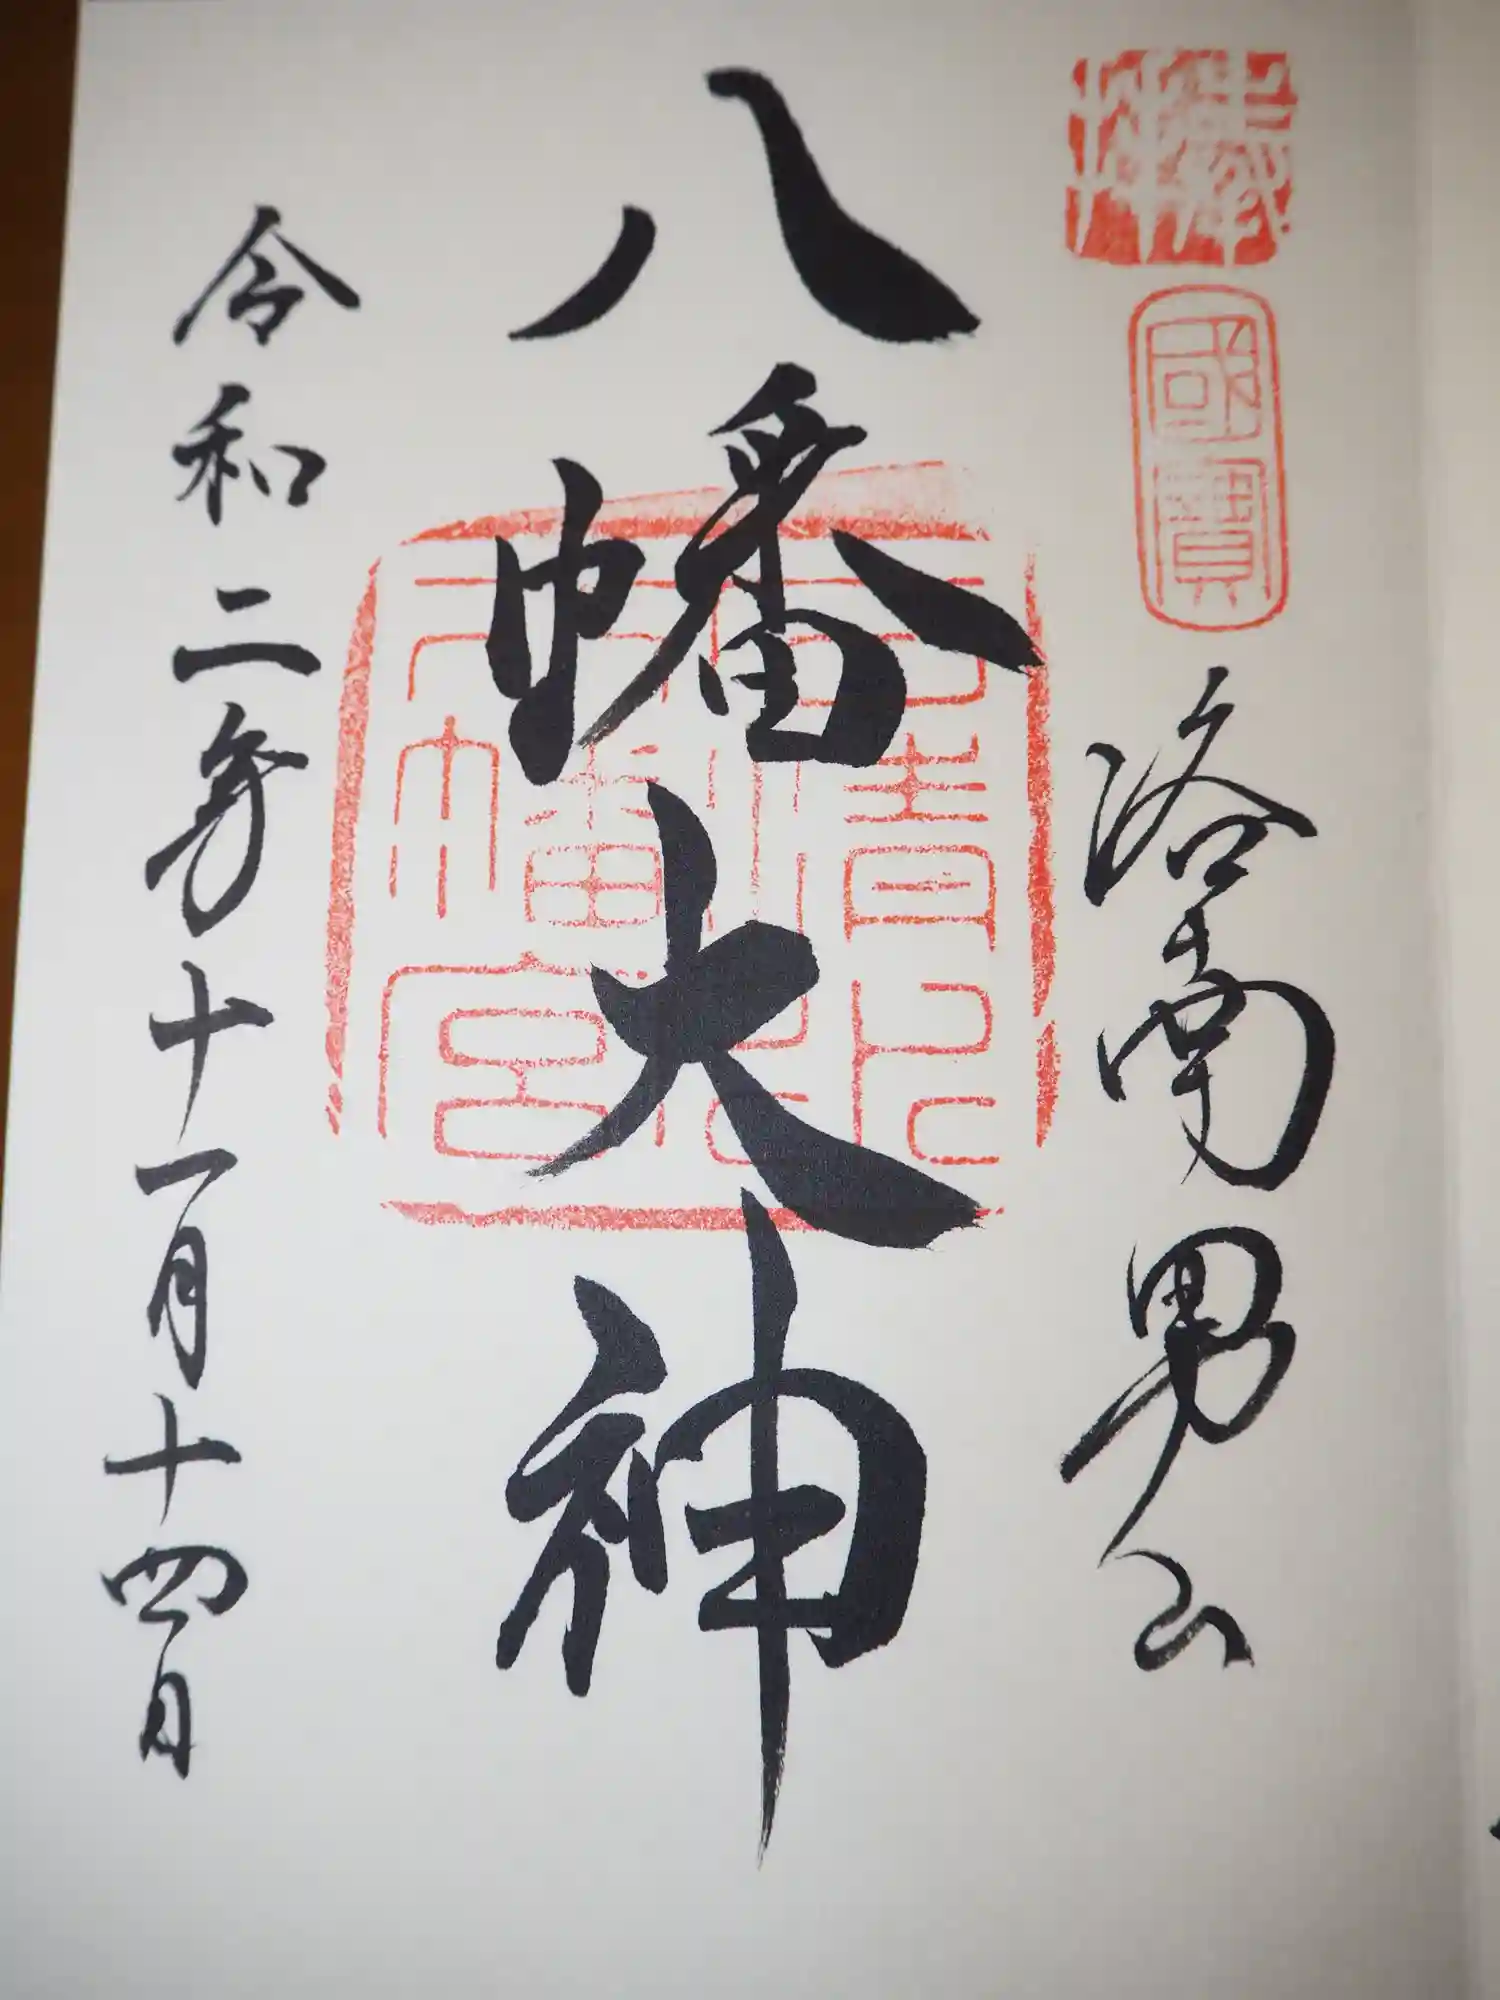 奉拝
國寶
洛南男山
八幡大神
石清水八幡宮
令和二年十一月十四日